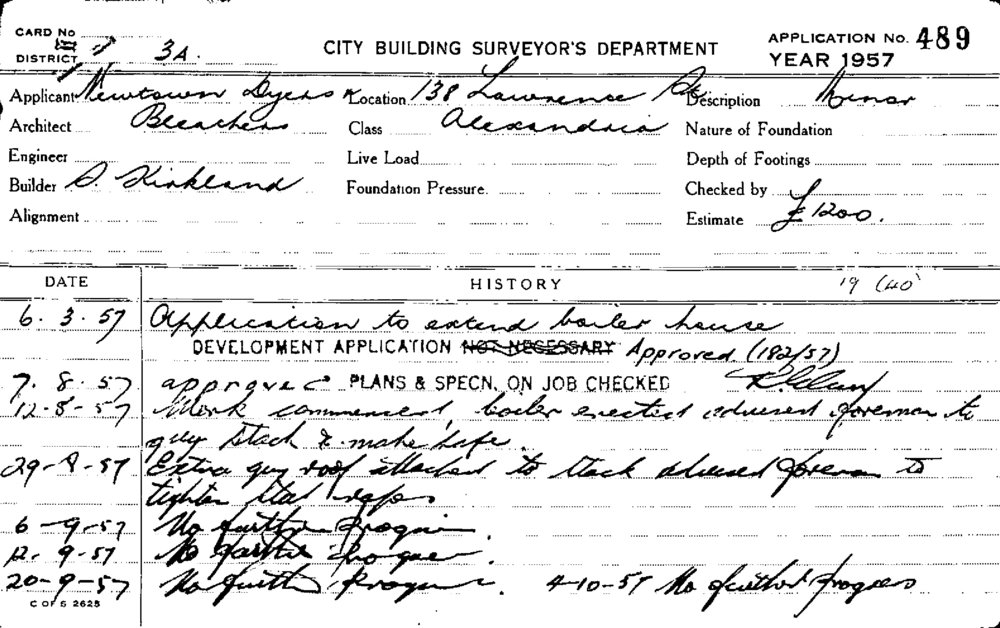 CARD No
DISTRICT 3A.
CITY BUILDING SURVEYOR'S DEPARTMENT
APPLICATION No. 489
YEAR 1957
Applicant Newtown Dyers & Location 138 Lawrence St Description Minor
Architect Bleachers Class Alexandria Nature of Foundation
Engineer Live Load Depth of Footings
Builder D. Kirkland Foundation Pressure. Checked by
Alignment Estimate £1200.
DATE HISTORY 19 (40)
6. 3. 57 Application to extend boiler house
DEVELOPMENT APPLICATION NOT NECESSARY Approved (182/57)
7. 8. 57 approved PLANS & SPECN. ON JOB CHECKED
12-8-57 Work commenced boiler erected advised foreman to
guy stack & make safe.
29-8-57 Extra guy attached to stack advised foreman to
tighten ropes
6-9-57 No further progress
12-9-57 No further progress.
20-9-57 No further progress. 4-10-57 No further progress
C OF S 2625